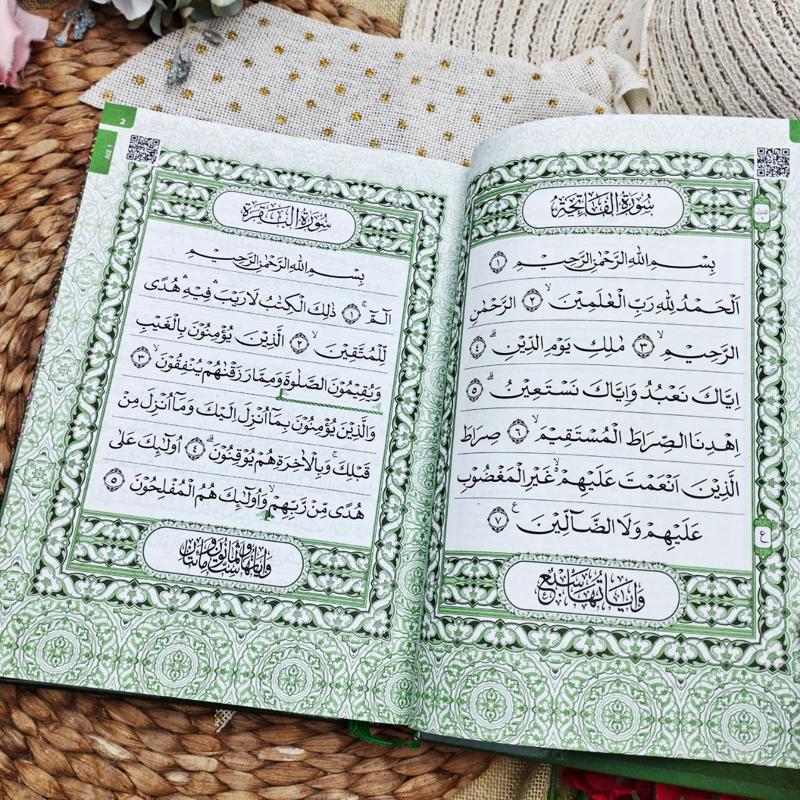 سُوْرَةُ الْفَاتِحَةِ
بِسْمِ اللّٰهِ الرَّحْمٰنِ الرَّحِيْمِ ۝١
اَلْحَمْدُ لِلّٰهِ رَبِّ الْعٰلَمِيْنَۙ ۝٢ الرَّحْمٰنِ
الرَّحِيْمِۙ ۝٣ مٰلِكِ يَوْمِ الدِّيْنِۗ ۝٤
اِيَّاكَ نَعْبُدُ وَاِيَّاكَ نَسْتَعِيْنُۗ ۝٥
اِهْدِنَا الصِّرَاطَ الْمُسْتَقِيْمَۙ ۝٦ صِرَاطَ
الَّذِيْنَ اَنْعَمْتَ عَلَيْهِمْ ەۙ غَيْرِ الْمَغْضُوْبِ
عَلَيْهِمْ وَلَا الضَّاۤلِّيْنَࣖ ۝٧
وَاٰيَاتُهَا سَبْعٌ
ع
2
JUZ 1
سُوْرَةُ الْبَقَرَةِ
بِسْمِ اللّٰهِ الرَّحْمٰنِ الرَّحِيْمِ
الۤمّۤۚ ۝١ ذٰلِكَ الْكِتٰبُ لَا رَيْبَۛ فِيْهِۛ هُدًى
لِّلْمُتَّقِيْنَۙ ۝٢ الَّذِيْنَ يُؤْمِنُوْنَ بِالْغَيْبِ
وَيُقِيْمُوْنَ الصَّلٰوةَ وَمِمَّا رَزَقْنٰهُمْ يُنْفِقُوْنَۙ ۝٣
وَالَّذِيْنَ يُؤْمِنُوْنَ بِمَآ اُنْزِلَ اِلَيْكَ وَمَآ اُنْزِلَ مِنْ
قَبْلِكَۚ وَبِالْاٰخِرَةِ هُمْ يُوْقِنُوْنَۗ ۝٤ اُولٰۤىِٕكَ عَلٰى
هُدًى مِّنْ رَّبِّهِمْۙ وَاُولٰۤىِٕكَ هُمُ الْمُفْلِحُوْنَ ۝٥